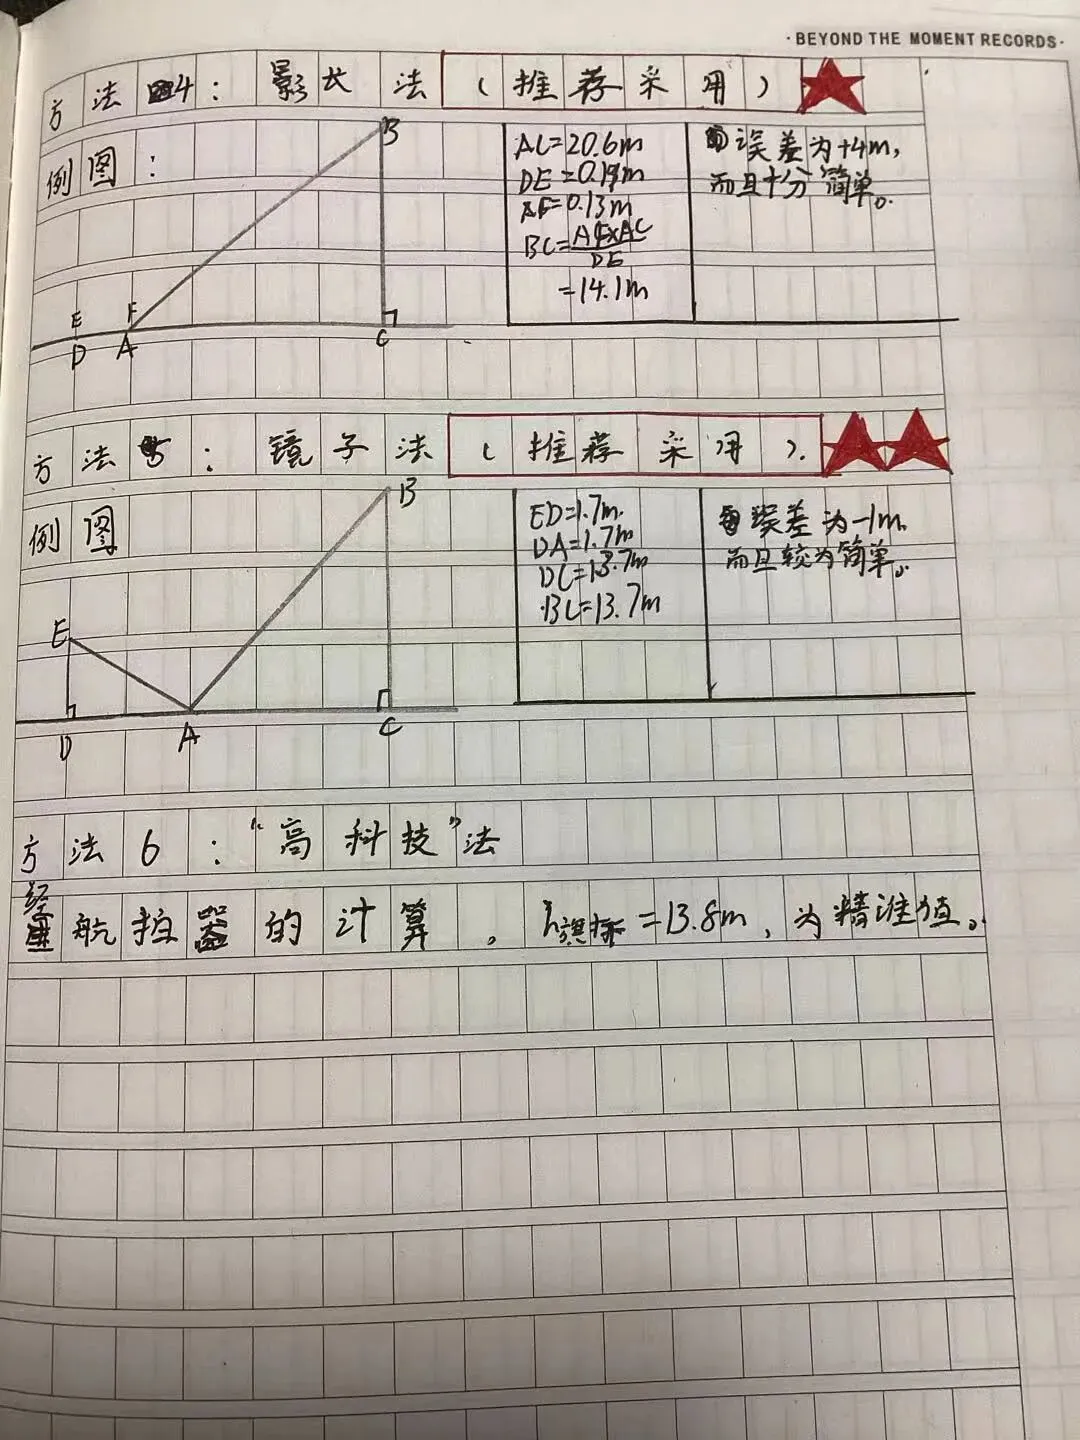 ·BEYOND THE MOMENT RECORDS·
方法4：影长法（推荐采用）
例图：
AC=20.6m
DE=0.19m
AF=0.13m
BC=AF×AC/DE
=14.1m
误差为+4m,
而且十分简单。
B
E F
D A C
方法5：镜子法（推荐采用）.
例图
ED=1.7m.
DA=1.7m
DC=13.7m
BC=13.7m
误差为-1m,
而且较为简单。
B
E
D A C
方法6：“高科技”法
经航拍器的计算。h旗杆=13.8m,为精准值。